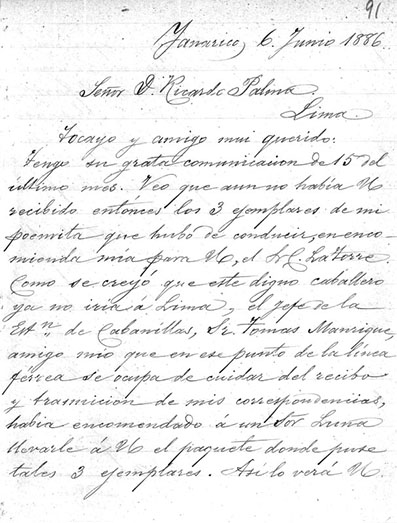 91
Yanarico, 6. Junio 1886
Señor D. Ricardo Palma.
Lima.
Tocayo y amigo mui querido:
Tengo su grata comunicacion de 15 del
último mes. Veo que aun no había U
recibido entónces los 3 ejemplares de mi
poemita que hubo de conducir, en enco-
mienda mia para U, el S. C. La Torre.
Como se creyó que este digno caballero
ya no iria á Lima, el jefe de la
Estn. de Cabanillas, Sr. Tomas Manrique,
amigo mio que en ese punto de la línea
férrea se ocupa de cuidar del recibo
y trasmicion de mis correspondencias,
habia encomendado á un Sor Luna
llevarle á U el paquete donde puse
tales 3 ejemplares. Asi lo verá U